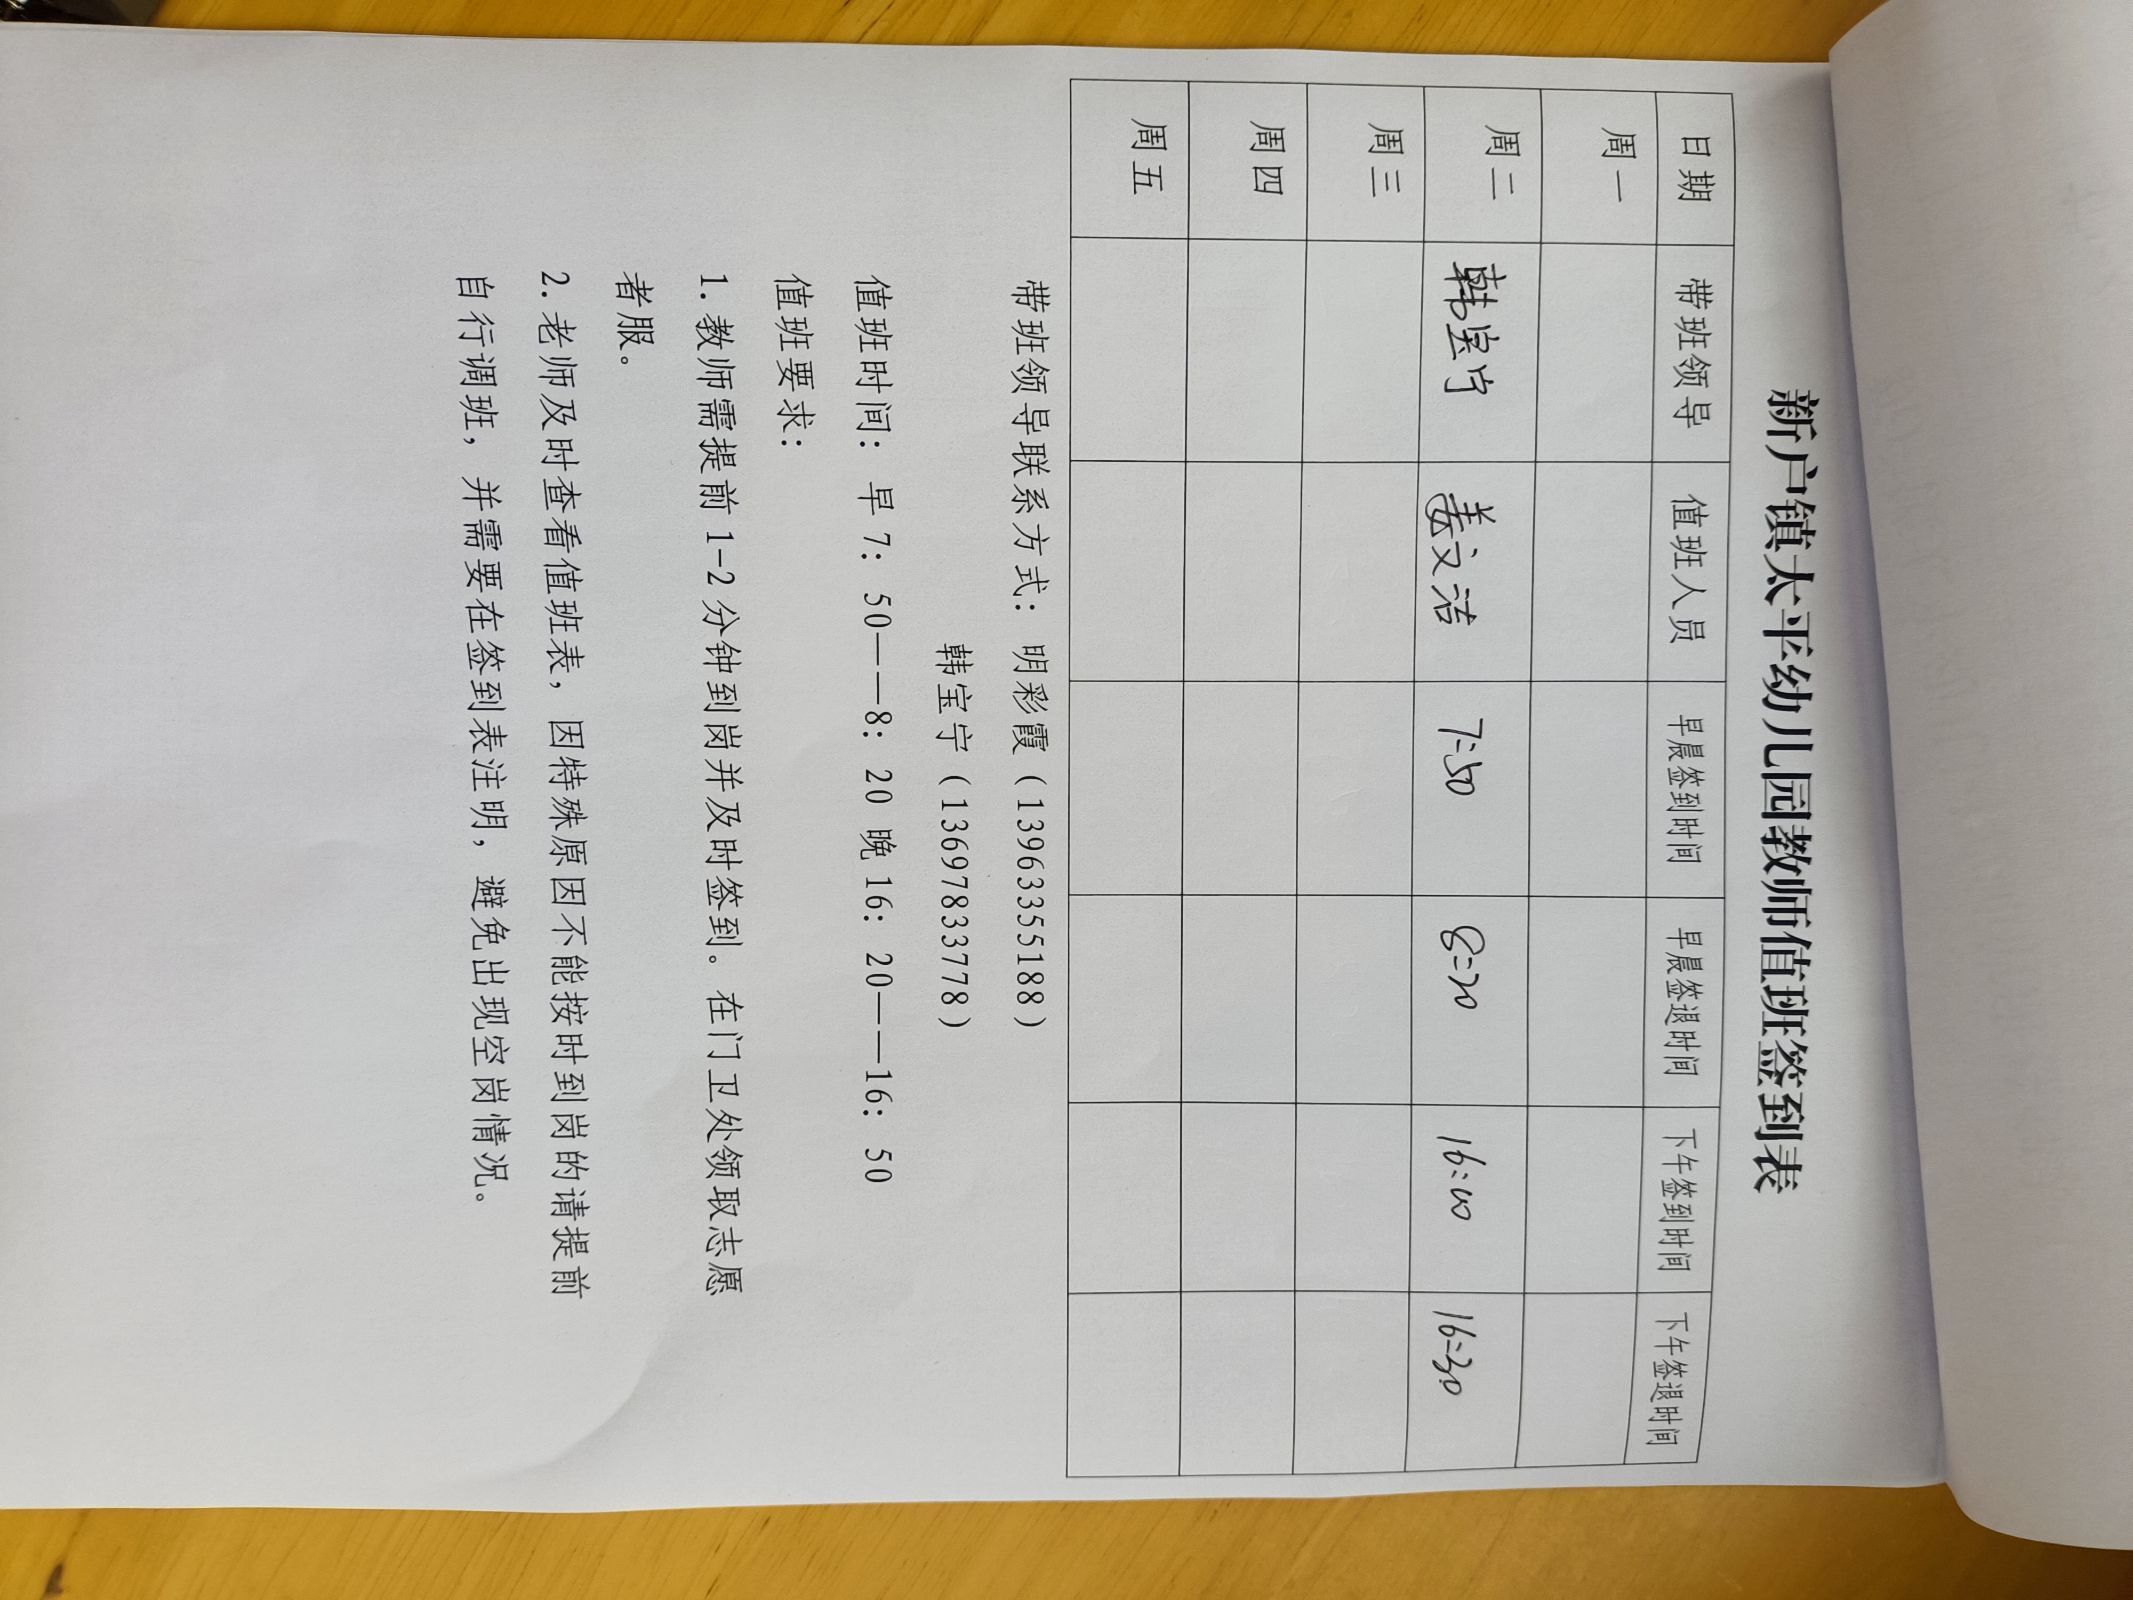 新户镇太平幼儿园教师值班签到表
日期 带班领导 值班人员 早晨签到时间 早晨签退时间 下午签到时间 下午签退时间
周一
周二 韩宝宁 姜文洁 7:50 8:20 16:00 16:30
周三
周四
周五
带班领导联系方式：明彩霞（13963355188）
韩宝宁（13697833778）
值班时间：早 7：50——8：20 晚 16：20——16：50
值班要求：
1.教师需提前 1-2 分钟到岗并及时签到。在门卫处领取志愿
者服。
2.老师及时查看值班表，因特殊原因不能按时到岗的请提前
自行调班，并需要在签到表注明，避免出现空岗情况。